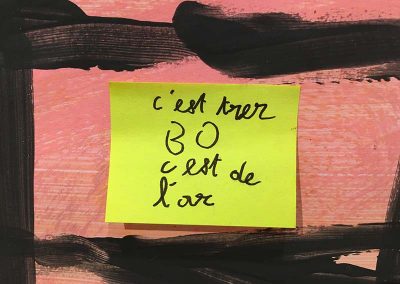 c'est trer
BO
c'est de
l'ar